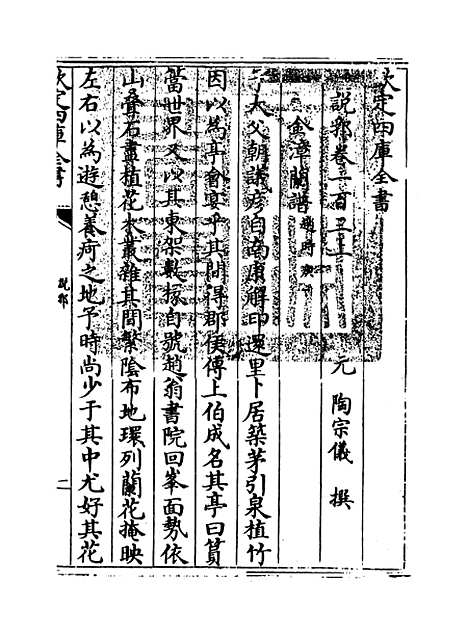 欽定四庫全書
説郛卷一百三
元 陶宗儀 撰
金漳蘭譜趙時庚
大父朝議彦自南康解印還里卜居築茅引泉植竹
因以為亭會宴乎其間得郡侯博士伯成名其亭曰篔
簹世界又以其東架數椽自號趙翁書院回峯面勢依
山疊石盡植花木叢雜其間繁陰布地環列蘭花掩映
左右以為遊憩養疴之地予時尚少于其中尤好其花
欽定四庫全書
説郛
二